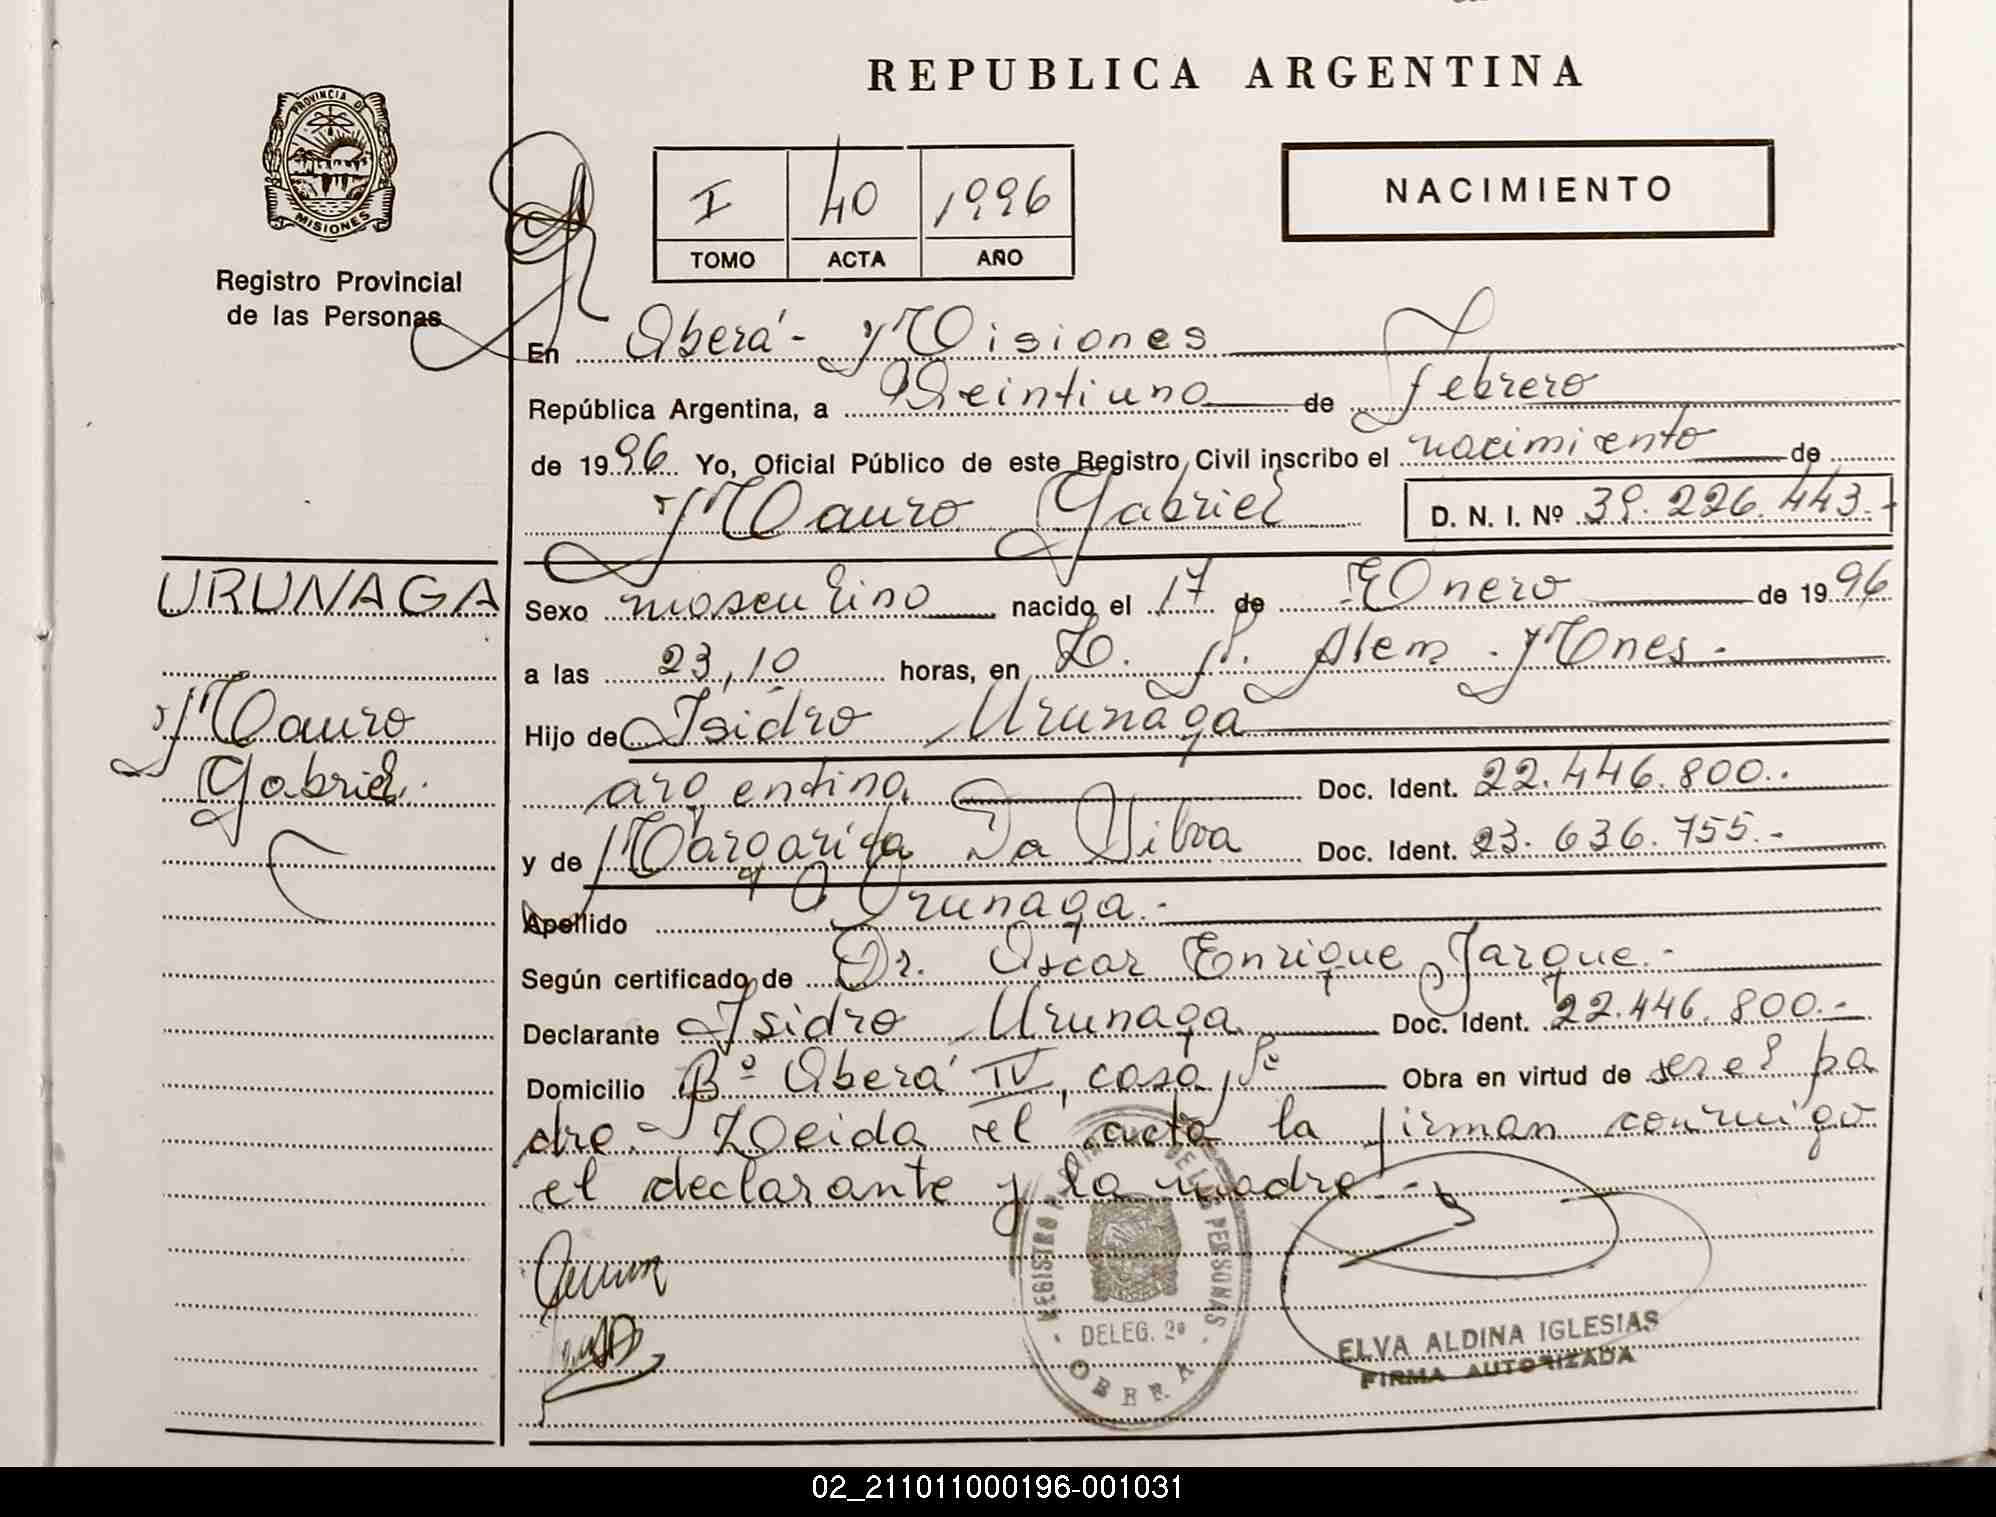 REPUBLICA ARGENTINA
PROVINCIA DE
MISIONES
Registro Provincial
de las Personas
I 40 1996
TOMO ACTA AÑO
NACIMIENTO
En Oberá - Misiones
República Argentina, a Veintiuno de febrero
de 1996 Yo, Oficial Público de este Registro Civil inscribo el nacimiento de
Mauro Gabriel D. N. I. Nº 39.226.443.-
URUNAGA
Mauro
Gabriel.
Sexo masculino nacido el 17 de Enero de 1996
a las 23,10 horas, en L. N. Alem - Mnes -
Hijo de Isidro Urunaga
argentina Doc. Ident. 22.446.800.-
y de Margarita Da Silva Doc. Ident. 23.636.755.-
Apellido Urunaga.-
Según certificado de Dr. Oscar Enrique Jarque.-
Declarante Isidro Urunaga Doc. Ident. 22.446.800.-
Domicilio Bº Oberá IV, casa Obra en virtud de ser el pa
dre.- Leida el acta la firman conmigo
el declarante y la madre.-
REGISTRO DE LAS PERSONAS
DELEG. 2ª
OBERA
ELVA ALDINA IGLESIAS
FIRMA AUTORIZADA
02_211011000196-001031